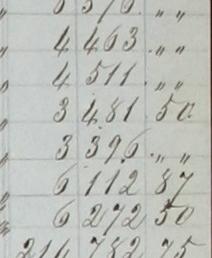 " 4 463 " "
" 4 511 " "
" 3 481 50
" 3 396 " "
" 6 112 87
" 6 272 50
214 782 75